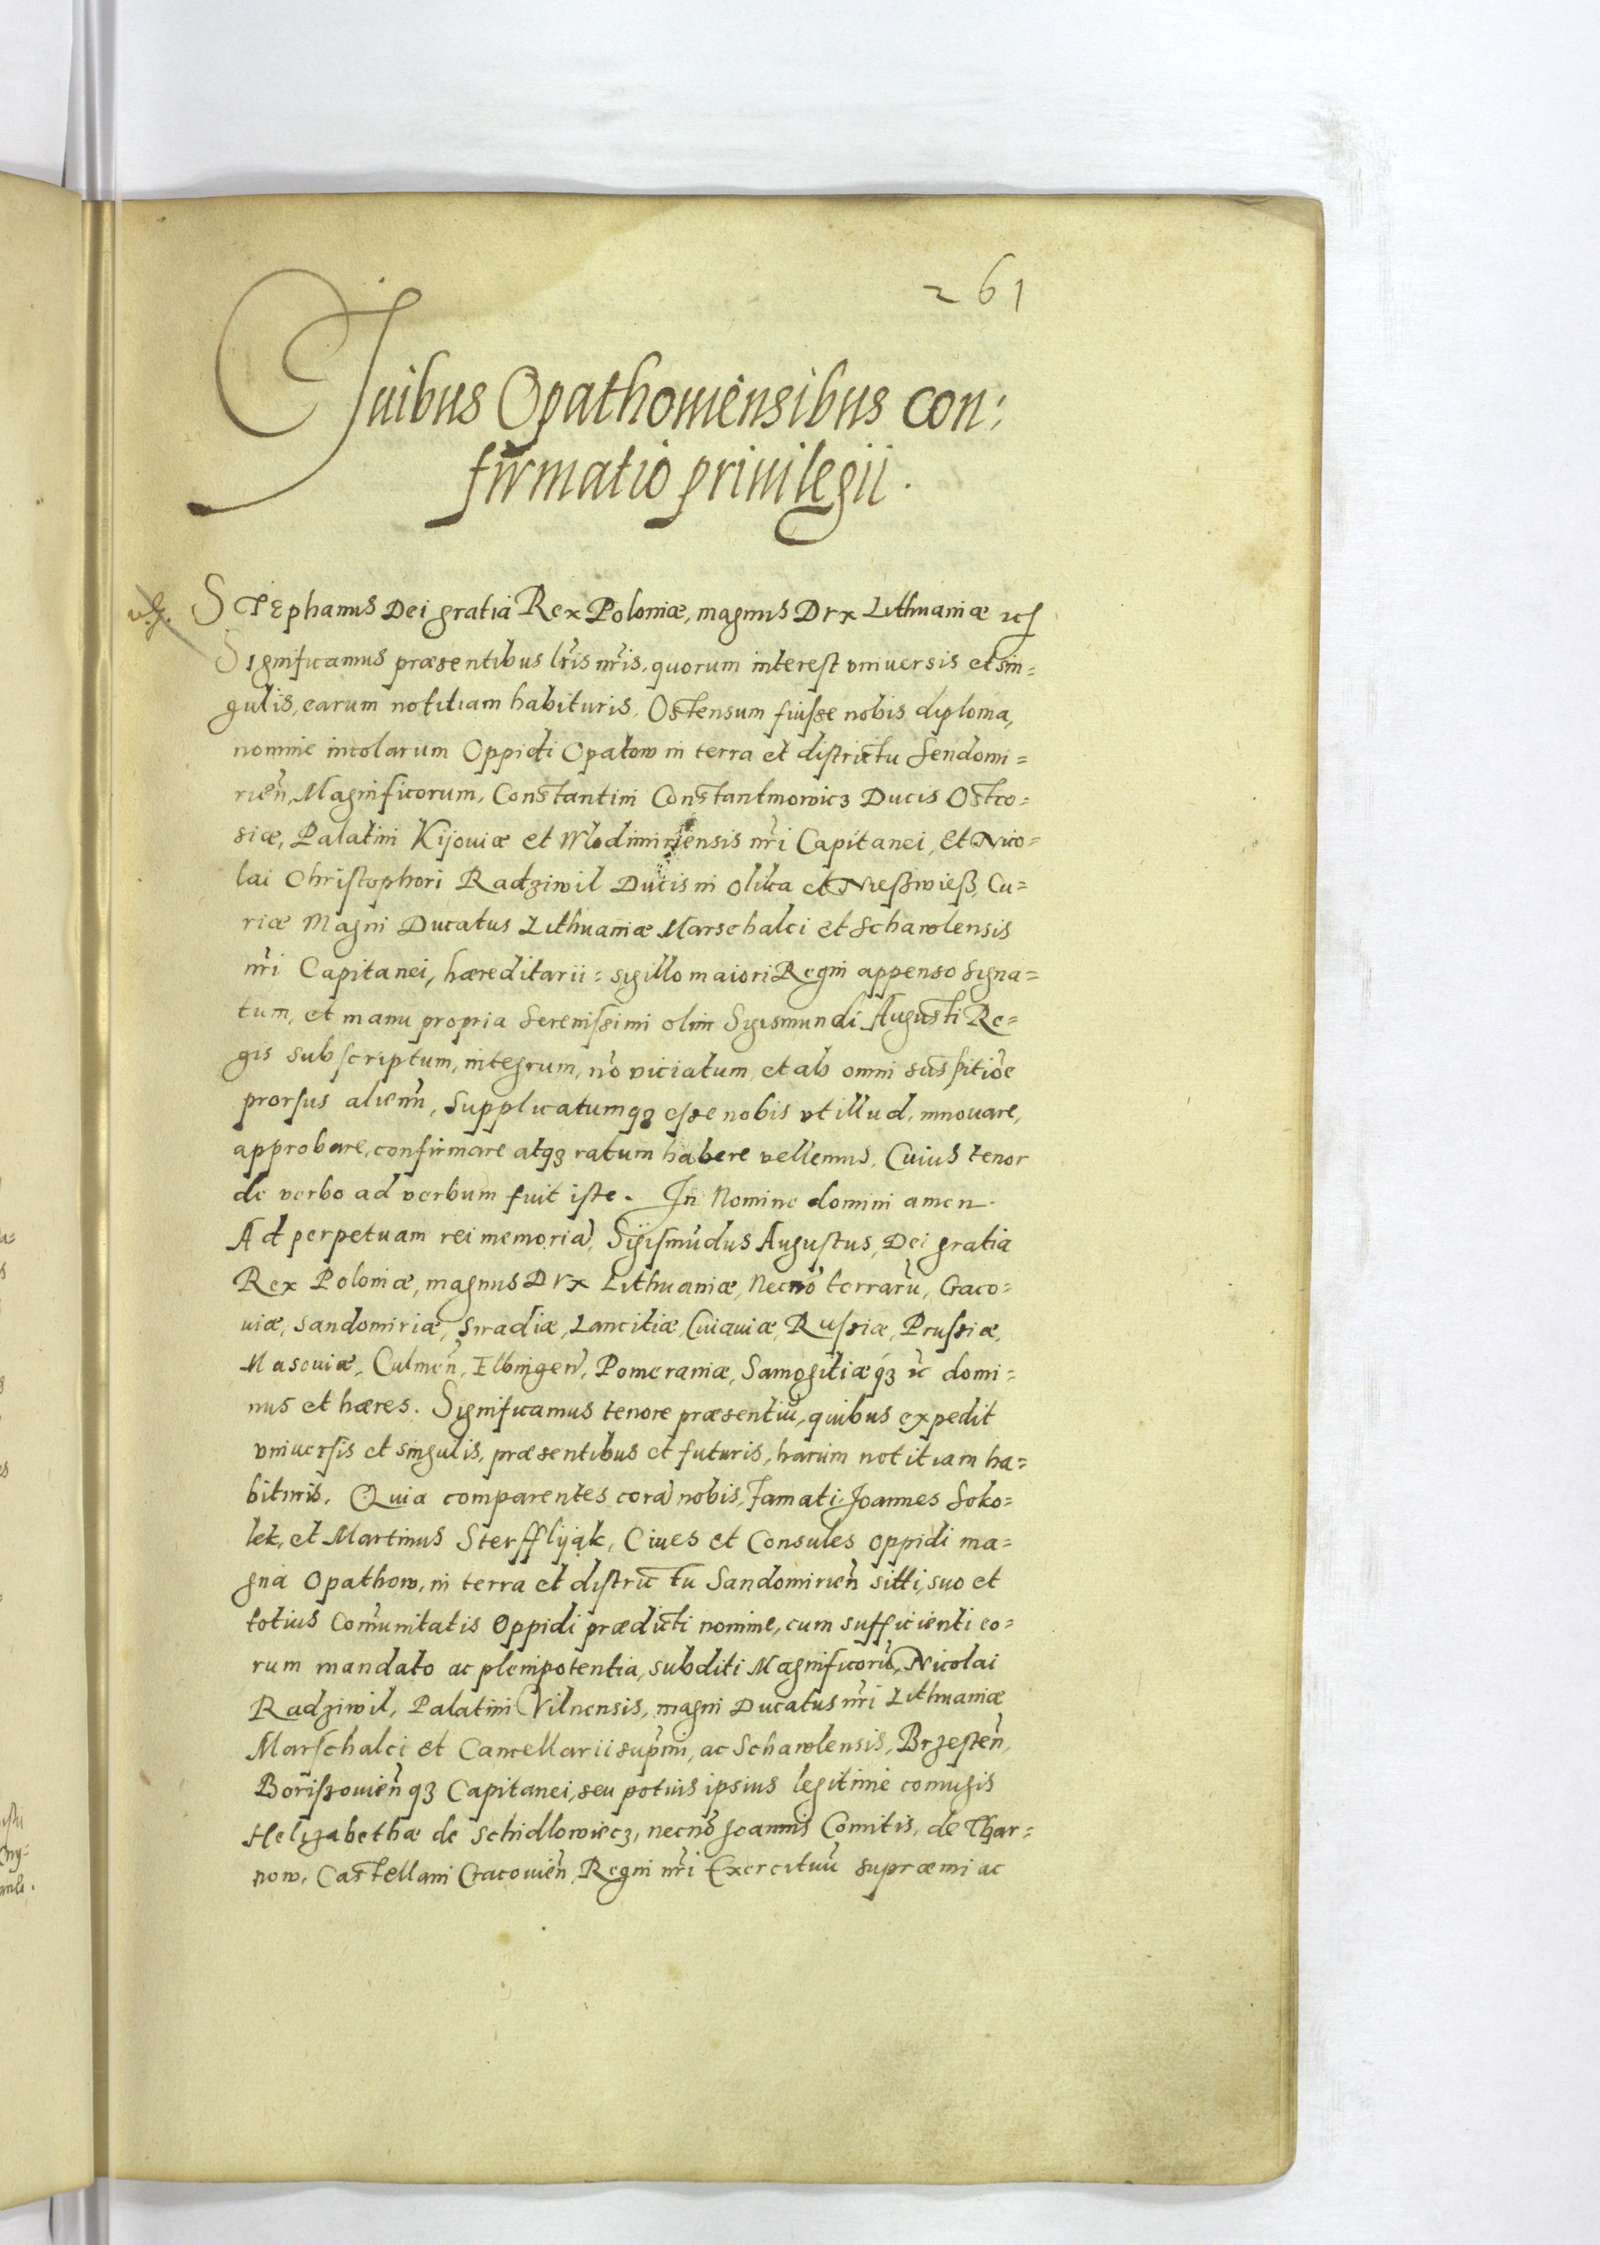 261
Ciuibus Opathouiensibus con:
firmatio priuilegii.
STEphanus Dei gratia Rex Poloniæ, magnus Dux Lithuaniæ ꝛc
Significamus præsentibus lr̃is nr̃is, quorum interest vniuersis et sin=
gulis, earum notitiam habituris, Ostensum fuisse nobis diploma,
nomine incolarum Oppidi Opatow in terra et districtu Sendomi=
rien̄, Magnificorum, Constantini Constantinowicz Ducis Ostro=
siæ, Palatini Kijouiæ et Wlodimiriensis nr̃i Capitanei, et Nico=
lai Christophori Radziwil Ducis in Olika et Nieswiesz, Cu=
riæ Magni Ducatus Lithuaniæ Marschalci et Schawlensis
nr̃i Capitanei, hæreditarii: sigillo maiori Regni appenso signa=
tum, et manu propria Serenissimi olim Sigismundi Augusti Re=
gis subscriptum, integrum, nō viciatum, et ab omni suspitiōe
prorsus alienū, Supplicatumqꝫ esse nobis vt illud, innouare,
approbare, confirmare atqꝫ ratum habere vellemus, Cuius tenor
de verbo ad verbum fuit iste. In Nomine domini amen.
Ad perpetuam rei memoriā, Sigismūdus Augustus, Dei gratia
Rex Poloniæ, magnus Dux Lithuaniæ, Necnō terrarū, Craco=
uiæ, Sandomiriæ, Siradiæ, Lancitiæ, Cuiauiæ, Russiæ, Prussiæ,
Masouiæ, Culmen̄, Elbingen̄, Pomeraniæ, Samogitiæqꝫ ꝛc domi=
nus et hæres. Significamus tenore præsentiū, quibus expedit
vniuersis et singulis, præsentibus et futuris, harum notitiam ha=
bituris. Quia comparentes corā nobis, Famati Joannes Soko=
lek, et Martinus Sterfflijak, Ciues et Consules oppidi ma=
gna Opathow, in terra et districtu Sandomirien̄ sitti, suo et
totius Com̄unitatis Oppidi prædicti nomine, cum sufficienti eo=
rum mandato ac plenipotentia, subditi Magnificorū, Nicolai
Radziwil, Palatini Vilnensis, magni Ducatus nr̃i Lithuaniæ
Marschalci et Cancellarii sup̄mi, ac Schawlensis, Brzesten̄,
Borissouien̄qꝫ Capitanei, seu potius ipsius legitime coniugis
Helizabethæ de Schidlowiecz, necnō Joannis Comitis, de Thar=
now, Castellani Cracouien̄, Regni nr̃i Exercituū supræmi ac